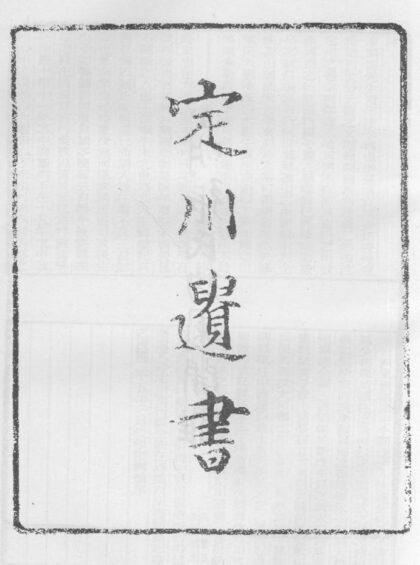 定川遺書